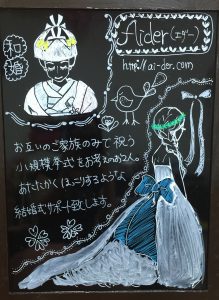 和婚
Aider(エダー)
http://ai-der.com
お互いのご家族のみで祝う
小規模挙式をお考えのお2人。
あたたかくほっこりするような
結婚式サポート致します。